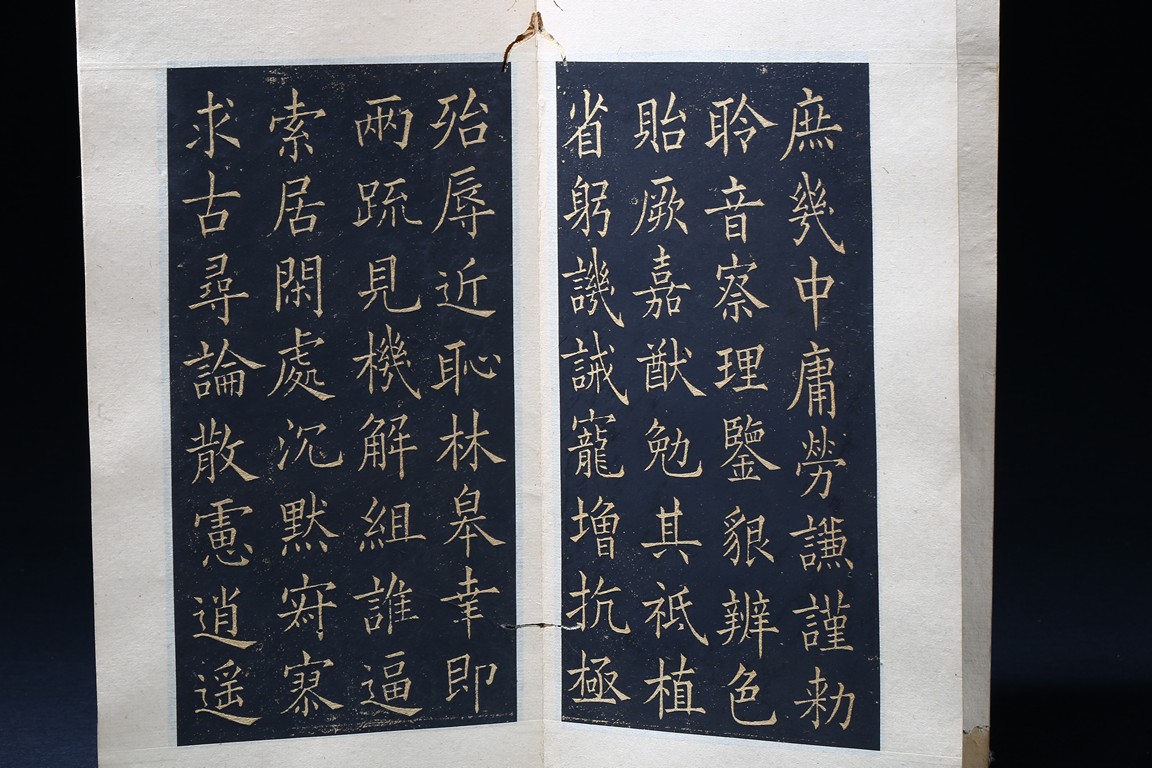 庶幾中庸勞謙謹勅
聆音察理鑒貌辨色
貽厥嘉猷勉其祗植
省躬譏誡寵增抗極
殆辱近恥林皋幸即
兩疏見機解組誰逼
索居閑處沉默寂寥
求古尋論散慮逍遥